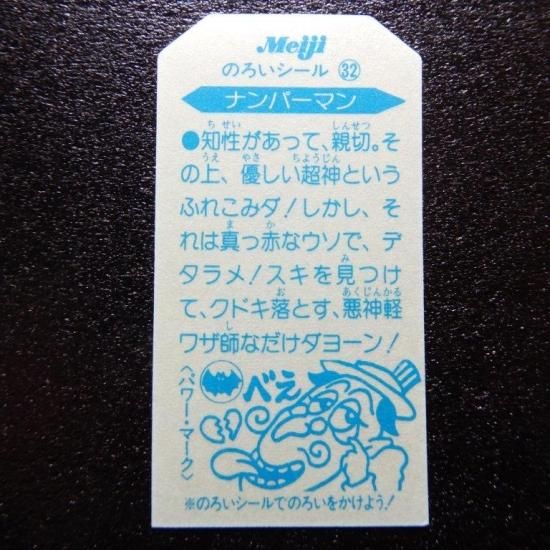 Meiji
のろいシール ㉜
ナンパーマン
●知性があって、親切。そ
の上、優しい超神という
ふれこみダ!しかし、そ
れは真っ赤なウソで、デ
タラメ!スキを見つけ
て、クドキ落とす、悪神軽
ワザ師なだけダヨーン!
〈パワー・マーク〉
べぇ
※のろいシールでのろいをかけよう!